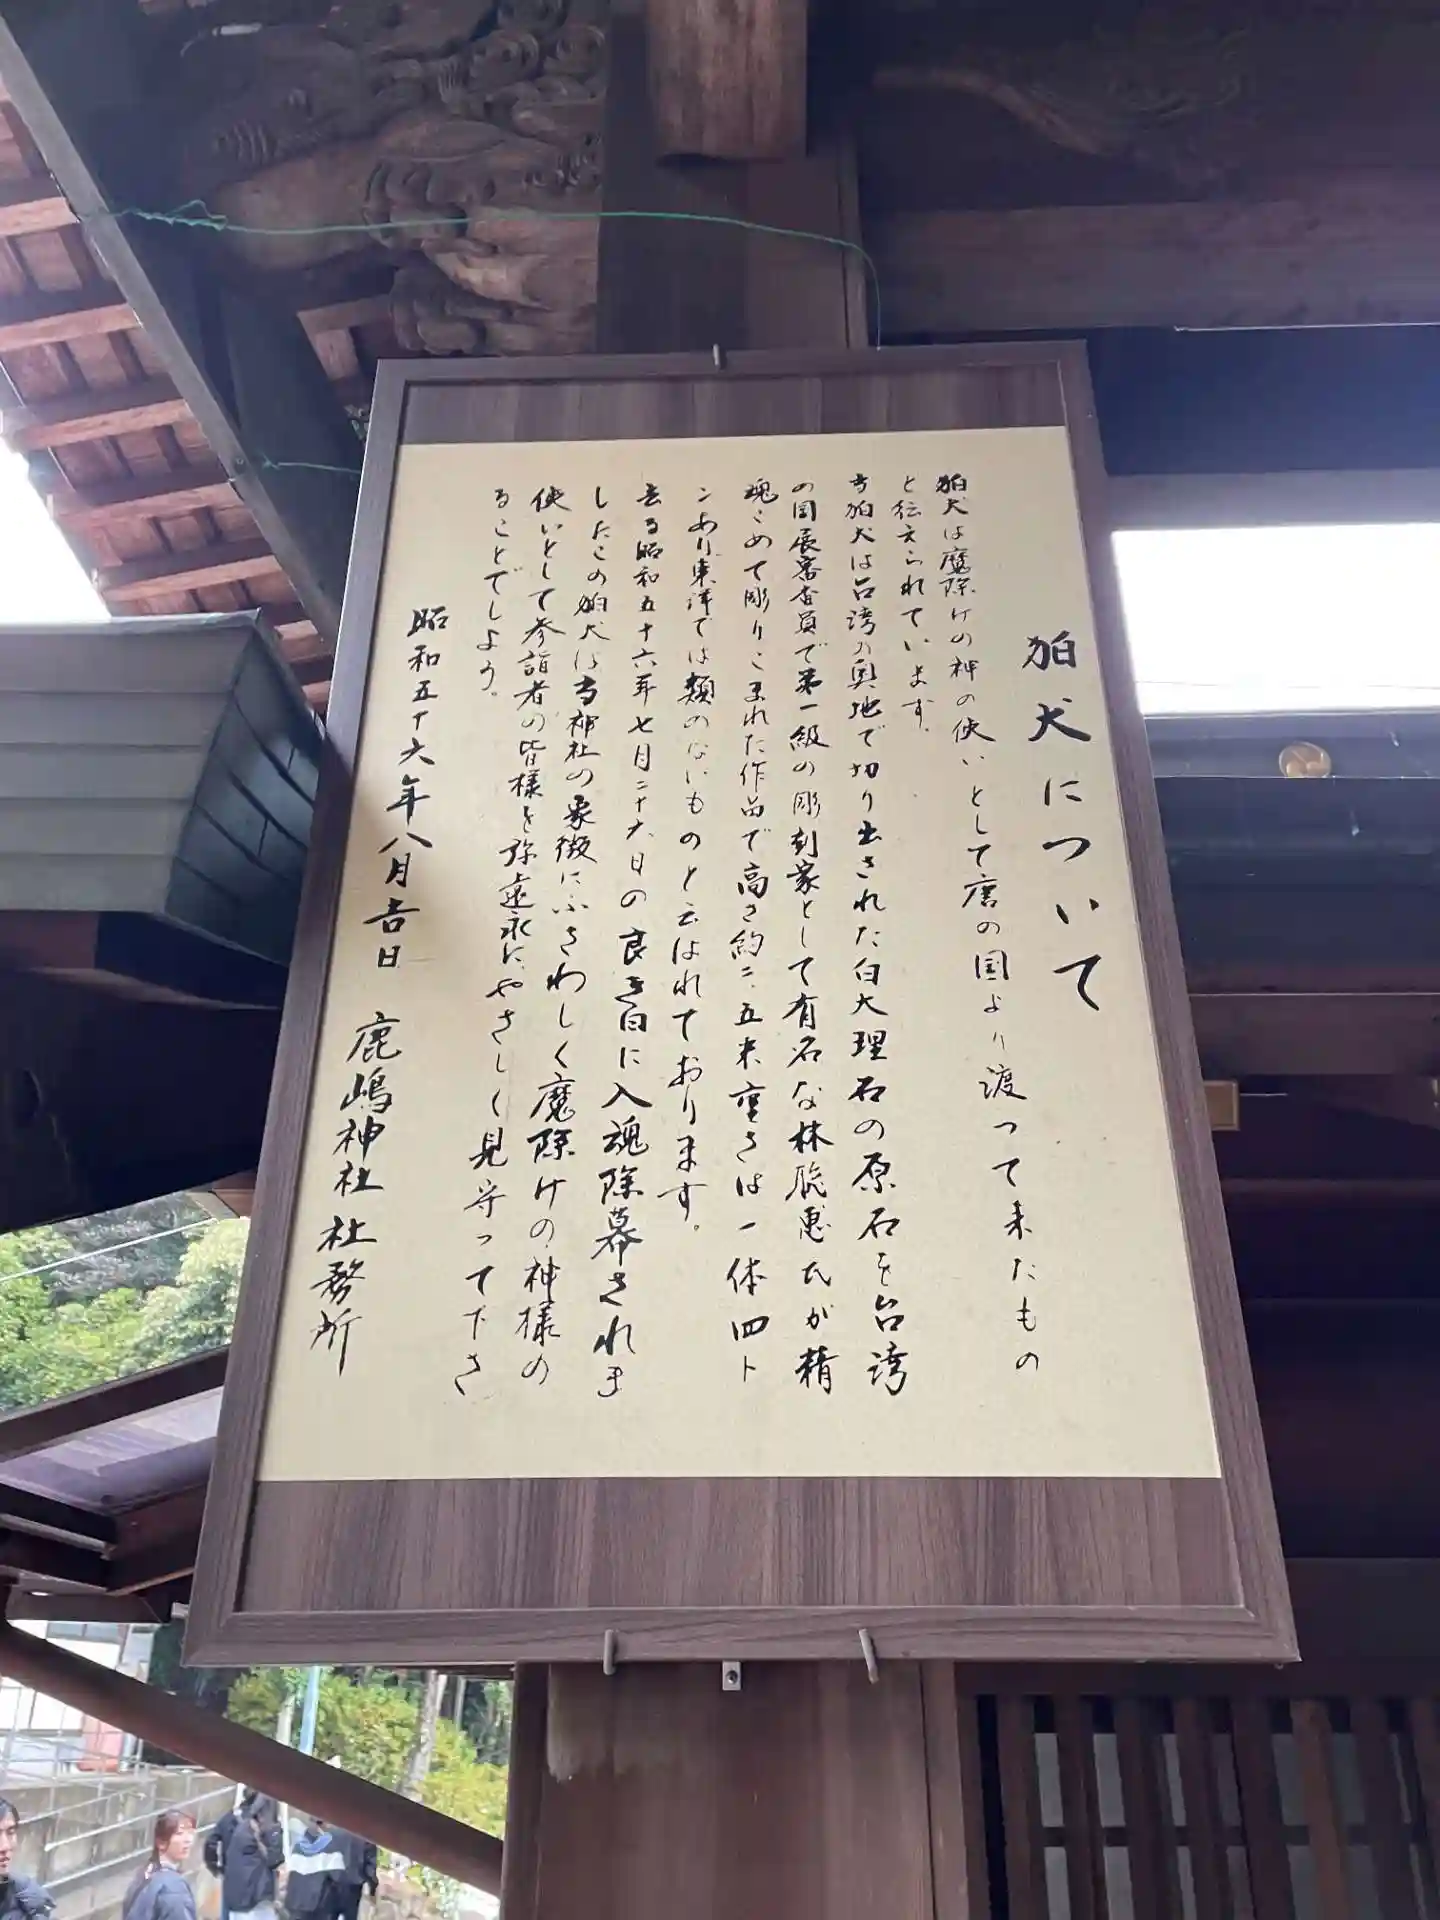 狛犬について
狛犬は魔除けの神の使いとして唐の国より渡って来たもの
と伝えられています。
当狛犬は台湾の奥地で切り出された白大理石の原石を台湾
の国展審査員で第一級の彫刻家として有名な林聡惠氏が精
魂こめて彫りこまれた作品で高さ約二、五米重さは一体四ト
ンあり、東洋では類のないものと云はれております。
去る昭和五十六年七月二十六日の良き日に入魂除幕されま
したこの狛犬は当神社の象徴にふさわしく魔除けの神様の
使いとして参詣者の皆様を弥遠永にやさしく見守って下さ
ることでしょう。
昭和五十六年八月吉日 鹿嶋神社 社務所